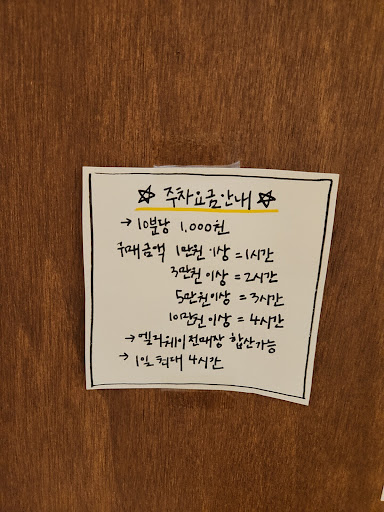 ☆ 주차요금안내 ☆
→ 10분당 1,000원
구매금액 1만원 이상 = 1시간
3만원 이상 = 2시간
5만원이상 = 3시간
10만원 이상 = 4시간
→ 엘리웨이 전매장 합산가능
→ 1일 최대 4시간